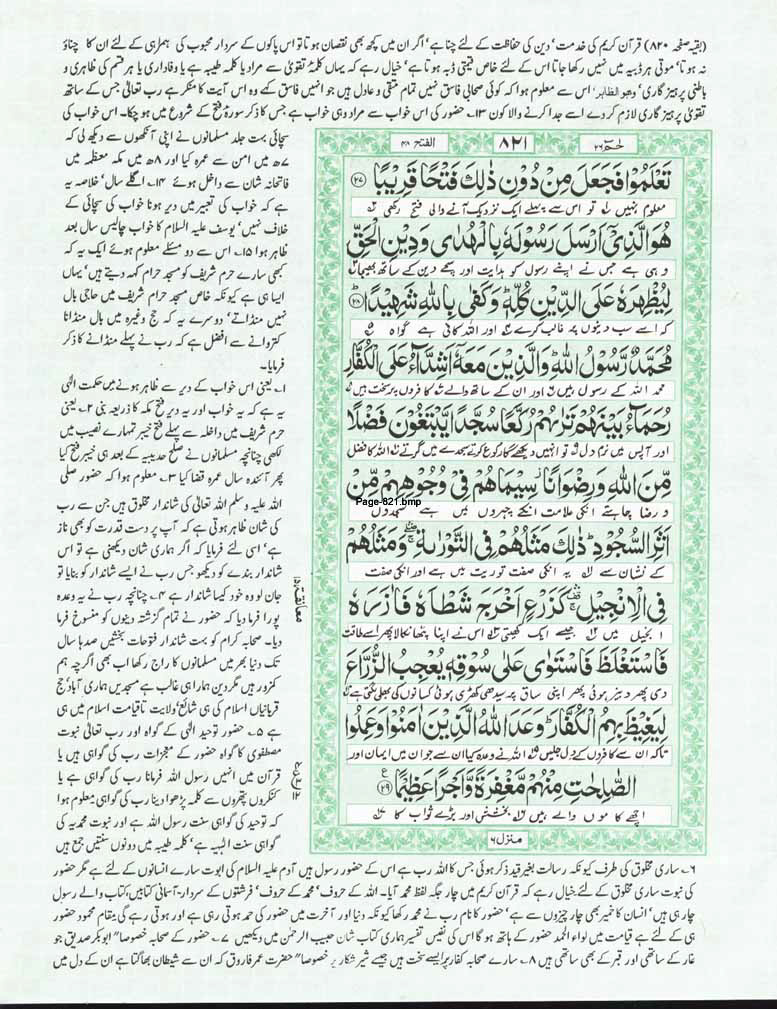 (بقیہ صفحہ ۸۲۰) قرآن کریم کی خدمت، دین کی حفاظت کے لئے چنا ہے، اگر ان میں کچھ بھی نقصان ہوتا تو اس پاکوں کے سردار محبوب کی ہمراہی کے لئے ان کا چناؤ
نہ ہوتا، موتی ہر ڈبیہ میں نہیں رکھا جاتا اس کے لئے خاص قیمتی ڈبہ ہوتا ہے، خیال رہے کہ یہاں کلمۂ تقویٰ سے مراد یا کلمہ طیبہ ہے یا وفاداری یا ہر قسم کی ظاہری و
باطنی پرہیز گاری، وھو الظاہر، اس سے معلوم ہوا کہ کوئی صحابی فاسق نہیں تمام متقی و عادل ہیں جو انہیں فاسق کہے وہ اس آیت کا منکر ہے رب تعالیٰ جس کے ساتھ
تقویٰ پرہیز گاری لازم کردے اسے جدا کرنے والا کون ۱۳۔ حضور کی اس خواب سے مراد وہی خواب ہے جس کا ذکر سورۂ فتح کے شروع میں ہو چکا۔ اس خواب کی
سچائی بہت جلد مسلمانوں نے اپنی آنکھوں سے دیکھ لی کہ
۷ھ میں امن سے عمرہ کیا اور ۸ھ میں مکہ معظمہ میں
فاتحانہ شان سے داخل ہوئے ۱۴۔ اگلے سال، خلاصہ یہ
ہے کہ خواب کی تعبیر میں دیر ہونا خواب کی سچائی کے
خلاف نہیں، یوسف علیہ السلام کا خواب چالیس سال بعد
ظاہر ہوا ۱۵۔ اس سے دو مسئلے معلوم ہوئے ایک یہ کہ
کبھی سارے حرم شریف کو مسجد حرام کہہ دیتے ہیں، یہاں
ایسا ہی ہے کیونکہ خاص مسجد حرام شریف میں حاجی بال
نہیں منڈاتے، دوسرے یہ کہ حج وغیرہ میں بال منڈانا
کتروانے سے افضل ہے کہ رب نے پہلے منڈانے کا ذکر
فرمایا۔
۱۔ یعنی اس خواب کے دیر سے ظاہر ہونے میں حکمت الٰہی
یہ ہے کہ یہ خواب اور یہ دیر فتح مکہ کا ذریعہ بنی ۲۔ یعنی
حرم شریف میں داخلہ سے پہلے فتح خیبر تمہارے نصیب میں
لکھی چنانچہ مسلمانوں نے صلح حدیبیہ کے بعد ہی خیبر فتح کیا
پھر آئندہ سال عمرہ قضا کیا ۳۔ معلوم ہوا کہ حضور صلی
اللہ علیہ وسلم اللہ تعالیٰ کی شاندار مخلوق ہیں جن سے رب
کی شان ظاہر ہوتی ہے کہ آپ پر دست قدرت کو بھی ناز
ہے، اسی لئے فرمایا کہ اگر ہماری شان دیکھنی ہے تو اس
شاندار بندے کو دیکھو جس رب نے ایسے شاندار کو بنایا تو
جان لو وہ خود کیسا شاندار ہے ۴۔ چنانچہ رب نے یہ وعدہ
پورا فرما دیا کہ حضور نے تمام گزشتہ دینوں کو منسوخ فرما
دیا۔ صحابہ کرام کو بہت شاندار فتوحات بخشیں صدہا سال
تک دنیا بھر میں مسلمانوں کا راج رکھا اب بھی اگرچہ ہم
کمزور ہیں مگر دین ہمارا ہی غالب ہے مسجدیں ہماری آباد، حج
قربانیاں اسلام کی ہی شائع، ولایت تا قیامت اسلام میں ہی
ہے ۵۔ حضور توحید الٰہی کے گواہ اور رب تعالیٰ نبوت
مصطفوی کا گواہ حضور کے معجزات رب کی گواہی ہیں یا
قرآن میں انہیں رسول اللہ فرمانا رب کی گواہی ہے یا
کنکروں پتھروں سے کلمہ پڑھوا دینا رب کی گواہی معلوم ہوا
کہ توحید کی گواہی سنت رسول اللہ ہے اور نبوت محمدیہ کی
گواہی سنت الٰہیہ ہے، کلمہ طیبہ میں دونوں سنتیں جمع ہیں
حٰمٓ ۲۶
۸۲۱
الفتح ۴۸
تَعْلَمُوْا فَجَعَلَ مِنْ دُوْنِ ذٰلِكَ فَتْحًا قَرِيْبًا ﴿۲۷﴾
معلوم نہیں تو اس سے پہلے ایک نزدیک آنے والی فتح رکھی
هُوَ الَّذِيْٓ اَرْسَلَ رَسُوْلَهٗ بِالْهُدٰى وَدِيْنِ الْحَقِّ
وہی ہے جس نے اپنے رسول کو ہدایت اور سچے دین کے ساتھ بھیجا
لِيُظْهِرَهٗ عَلَى الدِّيْنِ كُلِّهٖ ؕ وَكَفٰى بِاللّٰهِ شَهِيْدًا ﴿۲۸﴾
کہ اسے سب دینوں پر غالب کرے اور اللہ کافی ہے گواہ
مُحَمَّدٌ رَّسُوْلُ اللّٰهِ ؕ وَالَّذِيْنَ مَعَهٗٓ اَشِدَّآءُ عَلَى الْكُفَّارِ
محمد اللہ کے رسول ہیں اور ان کے ساتھ والے کافروں پر سخت ہیں
رُحَمَآءُ بَيْنَهُمْ تَرٰىهُمْ رُكَّعًا سُجَّدًا يَّبْتَغُوْنَ فَضْلًا
اور آپس میں نرم دل تو انہیں دیکھے گا رکوع کرتے سجدے میں گرتے اللہ کا فضل
مِّنَ اللّٰهِ وَرِضْوَانًا ؗ سِيْمَاهُمْ فِيْ وُجُوْهِهِمْ مِّنْ
و رضا چاہتے انکی علامت انکے چہروں میں ہے سجدوں
Page-821.bmp
اَثَرِ السُّجُوْدِ ؕ ذٰلِكَ مَثَلُهُمْ فِي التَّوْرٰىةِ ۛۖ وَمَثَلُهُمْ
کے نشان سے یہ انکی صفت توریت میں ہے اور انکی صفت
فِي الْاِنْجِيْلِ ۛۚ كَزَرْعٍ اَخْرَجَ شَطْاَهٗ فَاٰزَرَهٗ
انجیل میں جیسے ایک کھیتی اس نے اپنا پٹھا نکالا پھر اسے طاقت
فَاسْتَغْلَظَ فَاسْتَوٰى عَلٰى سُوْقِهٖ يُعْجِبُ الزُّرَّاعَ
دی پھر دبیز ہوئی پھر اپنی ساق پر سیدھی کھڑی ہوئی کسانوں کی بھلی لگتی ہے
لِيَغِيْظَ بِهِمُ الْكُفَّارَ ؕ وَعَدَ اللّٰهُ الَّذِيْنَ اٰمَنُوْا وَعَمِلُوا
تاکہ ان سے کافروں کے دل جلیں اللہ نے وعدہ کیا ان سے جو ان میں ایمان اور
الصّٰلِحٰتِ مِنْهُمْ مَّغْفِرَةً وَّاَجْرًا عَظِيْمًا ﴿۲۹﴾
اچھے کاموں والے ہیں بخشش اور بڑے ثواب کا
منزل ۶
معانقة ۱۵
۶۔ ساری مخلوق کی طرف کیونکہ رسالت بغیر قید ذکر ہوئی جس کا اللہ رب ہے اس کے حضور رسول ہیں آدم علیہ السلام کی ابوت سارے انسانوں کے لئے ہے مگر حضور
کی نبوت ساری مخلوق کے لئے خیال رہے کہ قرآن کریم میں چار جگہ لفظ محمد آیا۔ اللہ کے حروف، محمد کے حروف، فرشتوں کے سردار، آسمانی کتابیں، کتاب والے رسول
چار ہی ہیں، انسان کا خمیر بھی چار چیزوں سے ہے، حضور کا نام رب نے محمد رکھا کیونکہ دنیا اور آخرت میں حضور کی حمد ہوتی رہی ہے اور ہوتی رہے گی مقام محمود حضور
ہی کے لئے ہے قیامت میں لواء الحمد حضور کے ہاتھ ہو گا اس کی نفیس تفسیر ہماری کتاب شان حبیب الرحمٰن میں دیکھیں ۷۔ حضور کے صحابہ خصوصاً" ابوبکر صدیق جو
غار کے ساتھی اور قبر کے بھی ساتھی ہیں ۸۔ سارے صحابہ کفار پر ایسے سخت ہیں جیسے شیر شکار پر خصوصاً" حضرت عمر فاروق کہ ان سے شیطان بھاگتا ہے ان کے دل میں